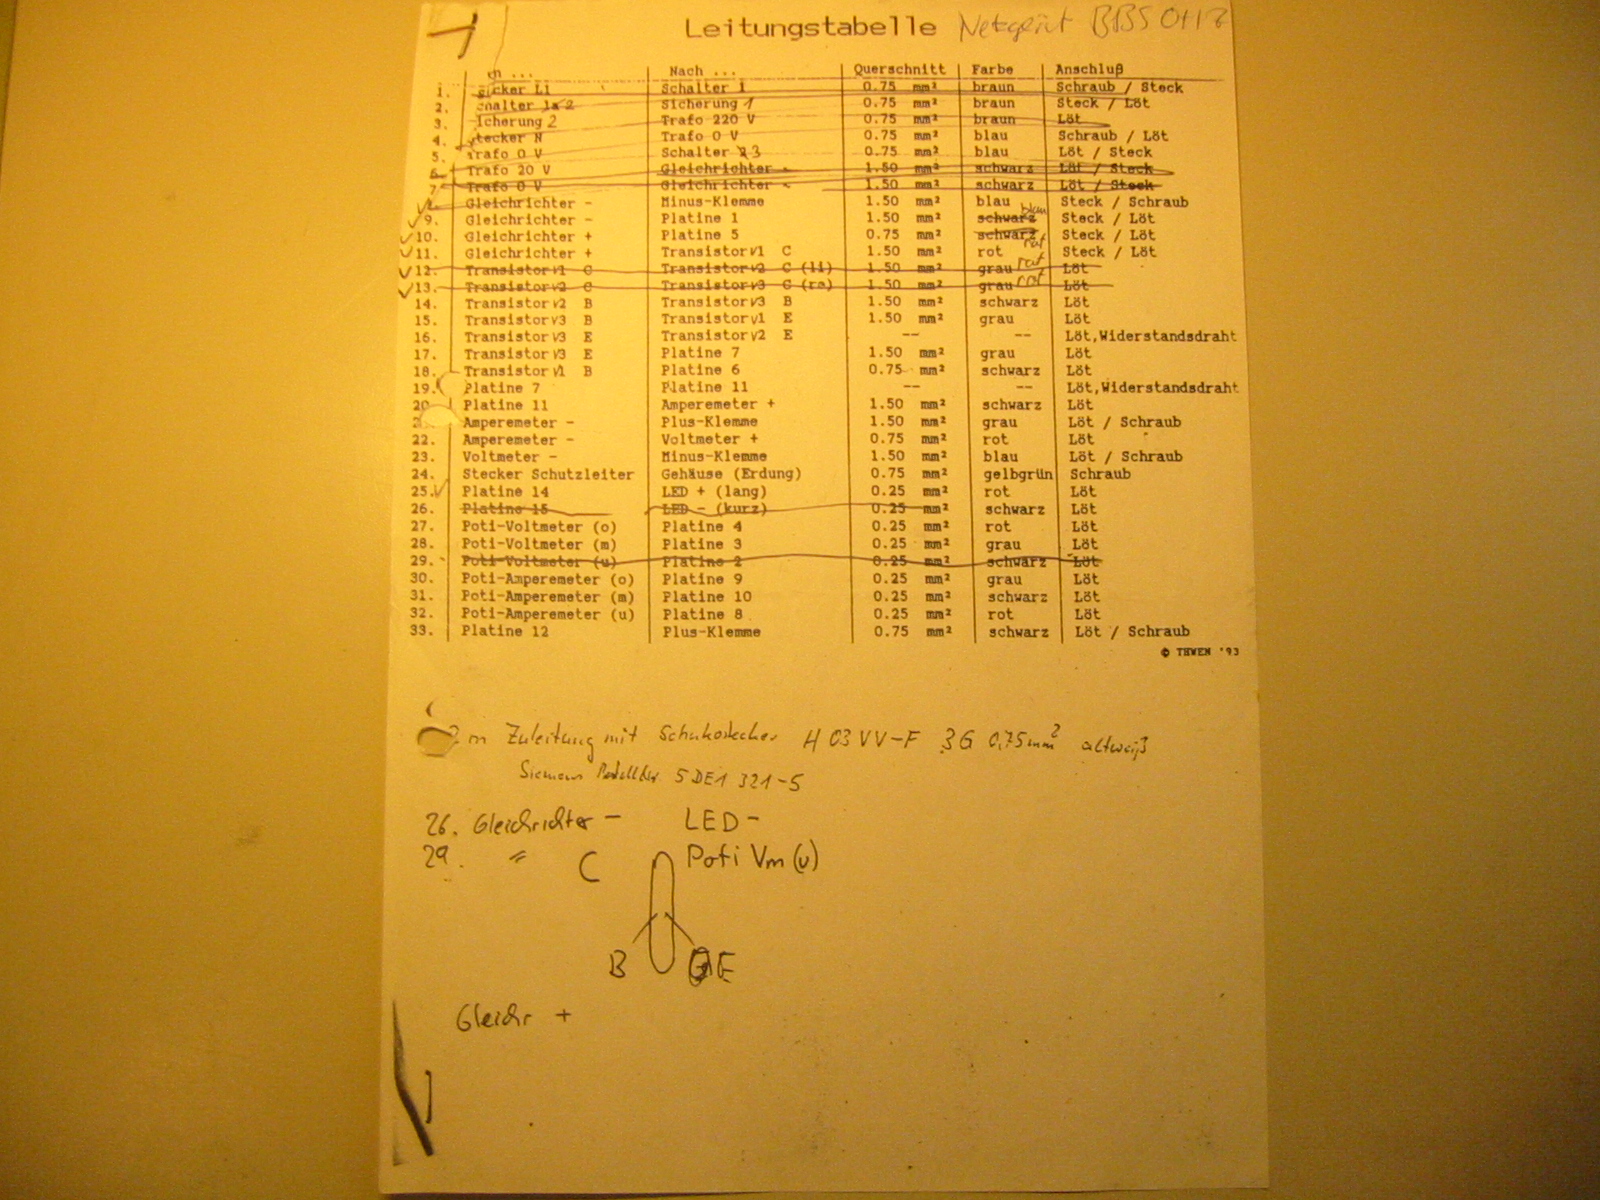 Leitungstabelle Netzgerät BBS OHZ
Nach ... Querschnitt Farbe Anschluß
1. Schalter 1 0.75 mm² braun Schraub / Steck
2. Sicherung 1 0.75 mm² braun Steck / Löt
3. icherung 2 Trafo 220 V 0.75 mm² braun Löt
4. tecker N Trafo 0 V 0.75 mm² blau Schraub / Löt
5. Trafo 0 V Schalter 3 0.75 mm² blau Löt / Steck
6. Trafo 20 V Gleichrichter ~ 1.50 mm² schwarz Löt / Steck
7. Trafo 0 V Gleichrichter ~ 1.50 mm² schwarz Löt / Steck
8. Gleichrichter - Minus-Klemme 1.50 mm² blau Steck / Schraub
9. Gleichrichter - Platine 1 1.50 mm² schwarz blau Steck / Löt
10. Gleichrichter + Platine 5 0.75 mm² schwarz rot Steck / Löt
11. Gleichrichter + Transistor V1 C 1.50 mm² rot Steck / Löt
12. Transistor V1 C Transistor V2 C (li) 1.50 mm² grau rot Löt
13. Transistor V2 C Transistor V3 C (re) 1.50 mm² grau rot Löt
14. Transistor V2 B Transistor V3 B 1.50 mm² schwarz Löt
15. Transistor V3 B Transistor V1 E 1.50 mm² grau Löt
16. Transistor V3 E Transistor V2 E -- -- Löt,Widerstandsdraht
17. Transistor V3 E Platine 7 1.50 mm² grau Löt
18. Transistor V1 B Platine 6 0.75 mm² schwarz Löt
19. Platine 7 Platine 11 -- -- Löt,Widerstandsdraht
20. Platine 11 Amperemeter + 1.50 mm² schwarz Löt
Amperemeter - Plus-Klemme 1.50 mm² grau Löt / Schraub
22. Amperemeter - Voltmeter + 0.75 mm² rot Löt
23. Voltmeter - Minus-Klemme 1.50 mm² blau Löt / Schraub
24. Stecker Schutzleiter Gehäuse (Erdung) 0.75 mm² gelbgrün Schraub
25. Platine 14 LED + (lang) 0.25 mm² rot Löt
26. Platine 15 LED - (kurz) 0.25 mm² schwarz Löt
27. Poti-Voltmeter (o) Platine 4 0.25 mm² rot Löt
28. Poti-Voltmeter (m) Platine 3 0.25 mm² grau Löt
29. Poti-Voltmeter (u) Platine 2 0.25 mm² schwarz Löt
30. Poti-Amperemeter (o) Platine 9 0.25 mm² grau Löt
31. Poti-Amperemeter (m) Platine 10 0.25 mm² schwarz Löt
32. Poti-Amperemeter (u) Platine 8 0.25 mm² rot Löt
33. Platine 12 Plus-Klemme 0.75 mm² schwarz Löt / Schraub
© THWEN '93
m Zuleitung mit Schukostecker H 03 VV-F 3G 0,75mm² altweiß
Siemens 5DE1 321-5
26. Gleichrichter - LED -
29. " Poti Vm (u)
C
B E
Gleichr +